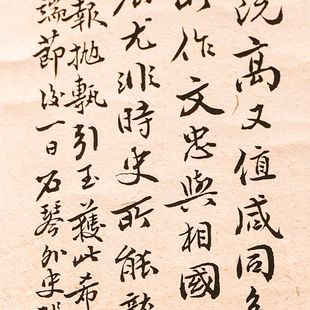 高又值咸同
作文忠與相國
尤非時史所能
報拋甎引玉獲此希
端節後一日石琴外史